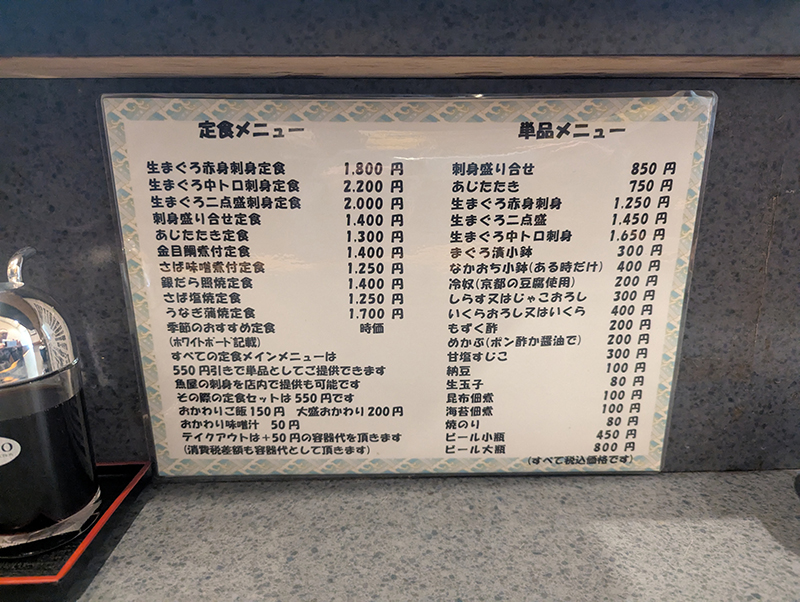 定食メニュー
生まぐろ赤身刺身定食 1.800 円
生まぐろ中トロ刺身定食 2.200 円
生まぐろ二点盛刺身定食 2.000 円
刺身盛り合せ定食 1.400 円
あじたたき定食 1.300 円
金目鯛煮付定食 1.400 円
さば味噌煮付定食 1.250 円
銀だら照焼定食 1.400 円
さば塩焼定食 1.250 円
うなぎ蒲焼定食 1.700 円
季節のおすすめ定食 時価
(ホワイトボード記載)
すべての定食メインメニューは
550円引きで単品としてご提供できます
魚屋の刺身を店内で提供も可能です
その際の定食セットは550円です
おかわりご飯150円 大盛おかわり200円
おかわり味噌汁 50円
テイクアウトは+50円の容器代を頂きます
(消費税差額も容器代として頂きます)
単品メニュー
刺身盛り合せ 850 円
あじたたき 750 円
生まぐろ赤身刺身 1.250 円
生まぐろ二点盛 1.450 円
生まぐろ中トロ刺身 1.650 円
まぐろ漬小鉢 300 円
なかおち小鉢(ある時だけ) 400 円
冷奴(京都の豆腐使用) 200 円
しらす又はじゃこおろし 300 円
いくらおろし又はいくら 400 円
もずく酢 200 円
めかぶ(ポン酢か醤油で) 200 円
甘塩すじこ 300 円
納豆 100 円
生玉子 80 円
昆布佃煮 100 円
海苔佃煮 100 円
焼のり 80 円
ビール小瓶 450 円
ビール大瓶 800 円
(すべて税込価格です)